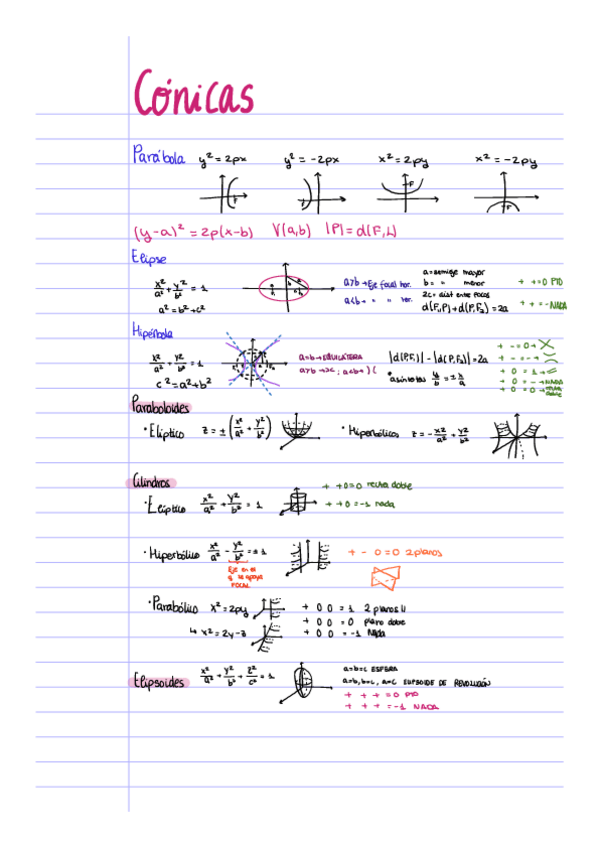 Cónicas
Parábola y² = 2px y² = -2px x² = 2py x² = -2py
F F F F
(y-a)² = 2p(x-b) V(a,b) |P| = d(F,L)
Elipse
x²/a² + y²/b² = 1
a² = b² + c²
a>b → Eje focal hor.
a<b → " " ver.
a = semieje mayor
b = " menor
2c = dist entre focos
d(F,P) + d(P,F₂) = 2a
+ + = 0 PTO
+ + = - NADA
Hipérbola
x²/a² + y²/b² = 1
c² = a² + b²
a=b → EQUILÁTERA
a>b → ; a<b → ) (
|d(P,F)| - |d(P,F₂)| = 2a
asíntotas y/b = ± x/a
+ - = 0 →
+ - = - →
+ 0 = 1 →
+ 0 = - → NADA
+ 0 = 0 → recta doble
Paraboloides
· Elíptico z = ± (x²/a² + y²/b²) · Hiperbólicos z = - x2/a² + y2/b²
Cilindros
· Elíptico x²/a² + y²/b² = 1
+ + 0 = 0 recta doble
+ + 0 = -1 nada
· Hiperbólico x²/a² - y²/b² = ± 1
Eje en el q se apoya FOCAL
+ - 0 = 0 2 planos
· Parabólico x² = 2py
↳ x² = 2y - z
+ 0 0 = 1 2 planos //
+ 0 0 = 0 plano doble
+ 0 0 = -1 Nada
Elipsoides x²/a² + y²/b² + z²/c² = 1
a=b=c ESFERA
a=b, b=c, a=c ELIPSOIDE DE REVOLUCIÓN
+ + + = 0 PTO
+ + + = -1 NADA